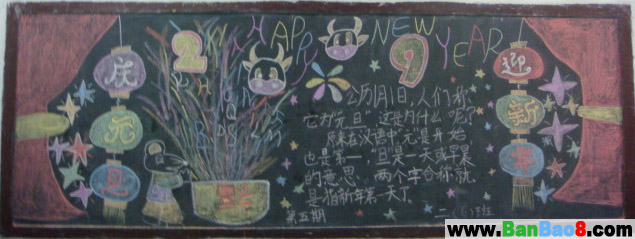 HAPPY NEW YEAR
2 9
庆元旦
迎新年
公历1月1日,人们称
它为“元旦”这是为什么呢?
原来在汉语中“元”是开始
也是第一“旦”是一天或早晨
的意思。两个字合称就
是指新年第一天了
第五期
www.BanBao8.com